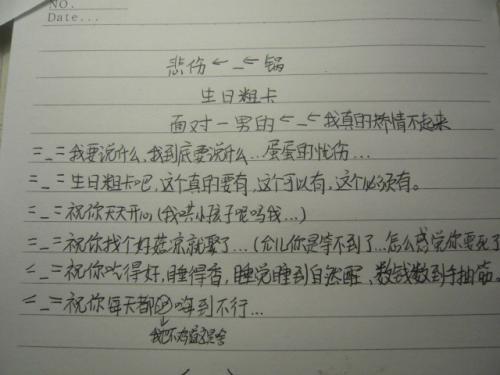 NO.
Date...
悲伤 ←_← 锅
生日粗卡
面对一男的 ←_← 我真的矫情不起来
=_= 我要说什么,我到底要说什么...蛋蛋的忧伤...
=_= 生日粗卡吧,这个真的要有,这个可以有,这个必须有。
=_= 祝你天天开心(我哄小孩子呢吗我...)
=_= 祝你找个好菇凉就娶了...(允儿你是等不到了...怎么感觉你要死了
<_= 祝你吃得好,睡得香,睡觉睡到自然醒、数钱数到手抽筋。
<_= 祝你每天都 嗨到不行...